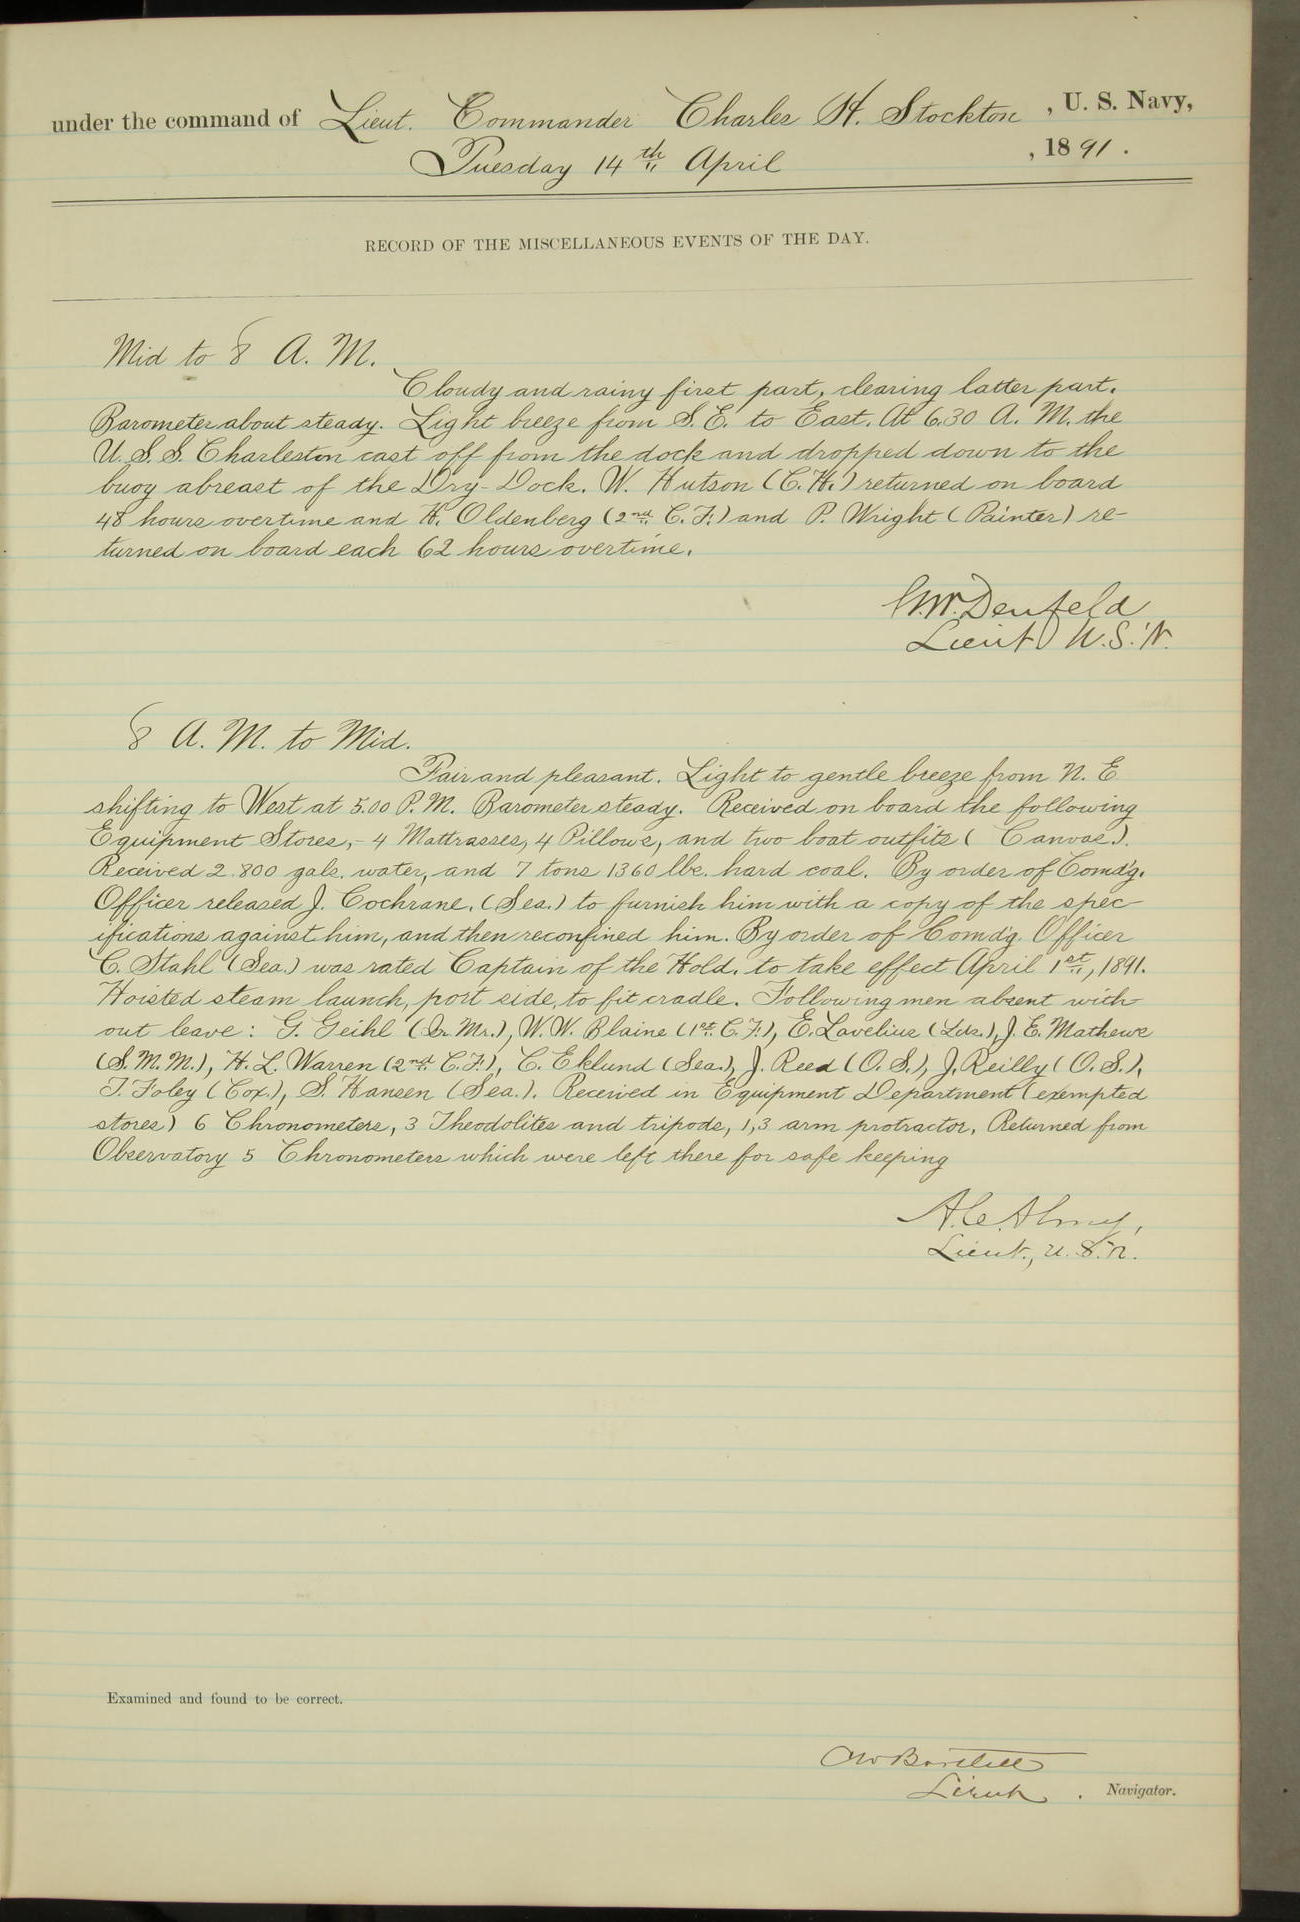 under the command of Lieut. Commander Charles H. Stockton, U. S. Navy,
Tuesday 14th April, 1891.
RECORD OF THE MISCELLANEOUS EVENTS OF THE DAY.
Mid to 8 A. M.
Cloudy and rainy first part, clearing latter part.
Barometer about steady. Light breeze from S. E. to East. At 6.30 A. M. the
U. S. S. Charleston cast off from the dock and dropped down to the
buoy abreast of the Dry-Dock. W. Hutson (C. H.) returned on board
48 hours overtime and H. Oldenberg (2nd. C. F.) and P. Wright (Painter) re-
turned on board each 62 hours overtime.
G.W. Denfeld
Lieut U.S.N.
8 A. M. to Mid.
Fair and pleasant. Light to gentle breeze from N. E
shifting to West at 5.00 P. M. Barometer steady. Received on board the following
Equipment Stores,- 4 Mattrasses, 4 Pillows, and two boat outfits ( Canvas).
Received 2.800 gals. water, and 7 tons 1360 lbs. hard coal. By order of Comd'g.
Officer released J. Cochrane. (Sea.) to furnish him with a copy of the spec-
ifications against him, and then reconfined him. By order of Comd'g. Officer
C. Stahl (Sea.) was rated Captain of the Hold. to take effect April 1st, 1891.
Hoisted steam launch, port side, to fit cradle. Following men absent with-
out leave: G. Geihl (Q. Mr.), W. W. Blaine (1st. C. F.), E. Lavelius (Lds.), J. E. Mathews
(S. M. M.), H. L. Warren (2nd C. F.), C. Eklund (Sea.), J. Reed (O. S.), J. Reilly (O. S.),
T. Foley (Cox.), S. Hansen (Sea.). Received in Equipment Department (exempted
stores) 6 Chronometers, 3 Theodolites and tripods, 1, 3 arm protractor. Returned from
Observatory 5 Chronometers which were left there for safe keeping
A.C. Almy,
Lieut., U.S.N.
Examined and found to be correct.
CW Bartlett
Lieut. Navigator.